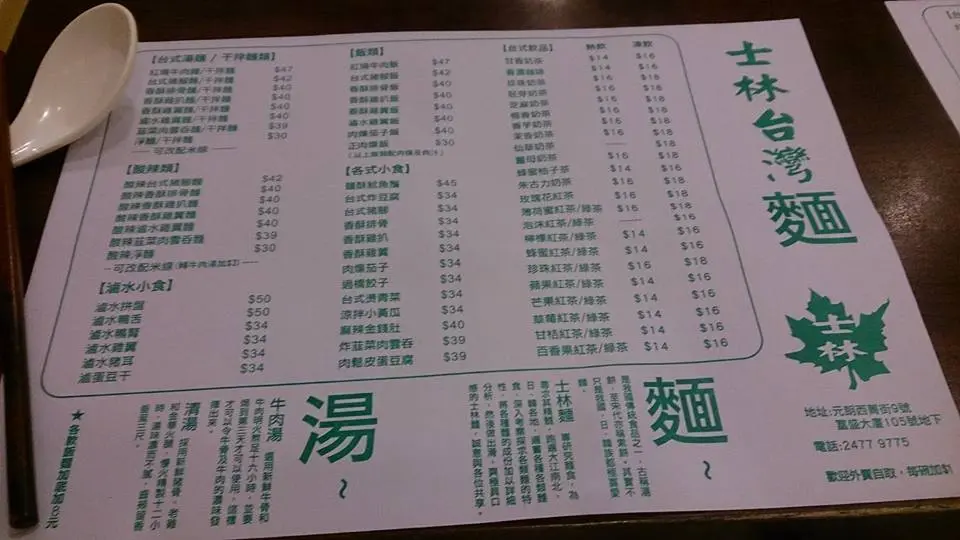 士林台灣麵
【台式湯麵 / 干拌麵類】
紅燒牛肉麵/干拌麵 $47
台式豬腳麵/干拌麵 $42
香酥排骨麵/干拌麵 $40
香酥雞扒麵/干拌麵 $40
香酥雞翼麵/干拌麵 $40
滷水雞翼麵/干拌麵 $40
韮菜肉雲吞麵/干拌麵 $39
淨麵/干拌麵 $30
可改配米線
【酸辣類】
酸辣台式豬腳麵 $42
酸辣香酥排骨麵 $40
酸辣香酥雞扒麵 $40
酸辣香酥雞翼麵 $40
酸辣滷水雞翼麵 $40
酸辣韮菜肉雲吞麵 $39
酸辣淨麵 $30
可改配米線
【滷水小食】
滷水拼盤 $50
滷水鴨舌 $50
滷水鴨腎 $34
滷水雞翼 $34
滷水豬耳 $34
滷蛋豆干 $34
【飯類】
紅燒牛肉飯 $47
台式豬腳飯 $42
香酥排骨飯 $40
香酥雞扒飯 $40
香酥雞翼飯 $40
滷水雞翼飯 $40
肉燥茄子飯 $40
正肉燥飯 $30
【各式小食】
麵酥魷魚鬚 $45
台式炸豆腐 $34
台式豬腳 $34
香酥排骨 $34
香酥雞扒 $34
香酥雞翼 $34
肉燥茄子 $34
過橋餃子 $34
台式燙青菜 $34
涼拌小黃瓜 $34
麻辣金錢肚 $40
炸韮菜肉雲吞 $39
肉鬆皮蛋豆腐 $39
【台式飲品】 熱飲 凍飲
甘香奶茶 $14 $16
香濃咖啡 $14 $16
珍珠奶茶 $16 $18
胚芽奶茶 $16 $18
芝麻奶茶 $16 $18
椰香奶茶 $16 $18
香芋奶茶 $16 $18
茉香奶茶 $16 $18
仙草奶茶
薑母奶茶 $16
蜂蜜柚子茶 $16 $18
朱古力奶茶 $16 $18
玫瑰花紅茶 $16 $18
薄荷蜜紅茶/綠茶 $16 $18
泡沫紅茶/綠茶 $16
檸檬紅茶/綠茶 $14 $16
蜂蜜紅茶/綠茶 $14 $16
珍珠紅茶/綠茶 $14 $16
蘋果紅茶/綠茶 $14 $16
芒果紅茶/綠茶 $14 $16
草莓紅茶/綠茶 $14 $16
甘桔紅茶/綠茶 $14 $16
百香果紅茶/綠茶 $14 $16
士林
地址:元朗西菁街9號
富盛大廈105號地下
電話:2477 9775
歡迎外賣自取，每碗加$1
麵~
是我國傳統食品之一，古稱湯
餅，至宋代亦稱索餅。其實不
只是我國，日、韓族都極喜愛
麵。
士林麵 專研究麵食，為
尋求其精髓，跑遍大江南北，
日、韓各地，遍嘗各種各類麵
食，深入考察探求各類麵的特
性，將各種麵的成份加以詳細
分析，然後做出滑、爽極具口
感的士林麵，誠意與各位共享。
湯~
牛肉湯 選用新鮮牛骨和
牛肉明火熬足十六小時，並要
焗到第三天才可以使用，這樣
才可以令牛骨及牛肉的濃味發
揮出來。
清湯 採用新鮮豬骨，老雞
和金華火腿，慢火精製十二小
時，湯清濃而不膩，齒頰留香
香溢三尺。
★各款飯麵加底加8元